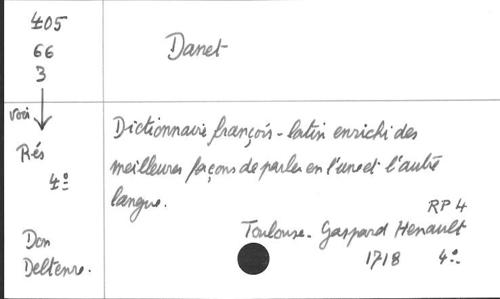 405
66
3
Danet
voir
Rés
4º
Dictionnaire françois-latin enrichi des
meilleures façons de parler en l'une et l'autre
langue.
RP 4
Toulouse. Gaspard Henault
1718 4º.
Don
Deltenre.